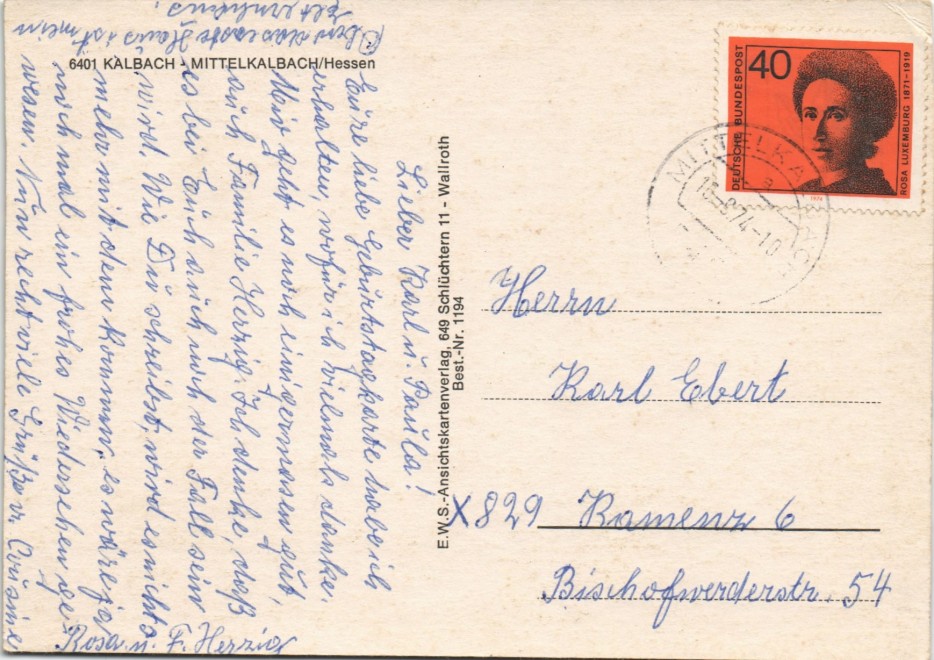 6401 KALBACH - MITTELKALBACH/Hessen
Lieber Karl u. Paula!
Eure liebe Geburtstagkarte habe ich
erhalten, wofür ich vielmals danke.
Mir geht es noch einigermasen gut,
auch Familie Herzig. Ich denke, daß
es bei Euch auch noch der Fall sein
wird. Wie Du schreibst, wird es nichts
mehr mit dem kommen, es wäre ja
noch mal ein frohes Wiedersehen ge-
wesen. Nun recht viele Grüße v. Cousine
Rosa u. F. Herzig
Oben das erste Haus ist mein
E.W.S.-Ansichtskartenverlag, 649 Schlüchtern 11 - Wallroth
Best.-Nr. 1194
DEUTSCHE BUNDESPOST
40
ROSA LUXEMBURG 1871-1919
1974
MITTELKALBACH
-8.74-10
Herrn
Karl Ebert
X829 Kamenz 6
Bischofwerderstr. 54